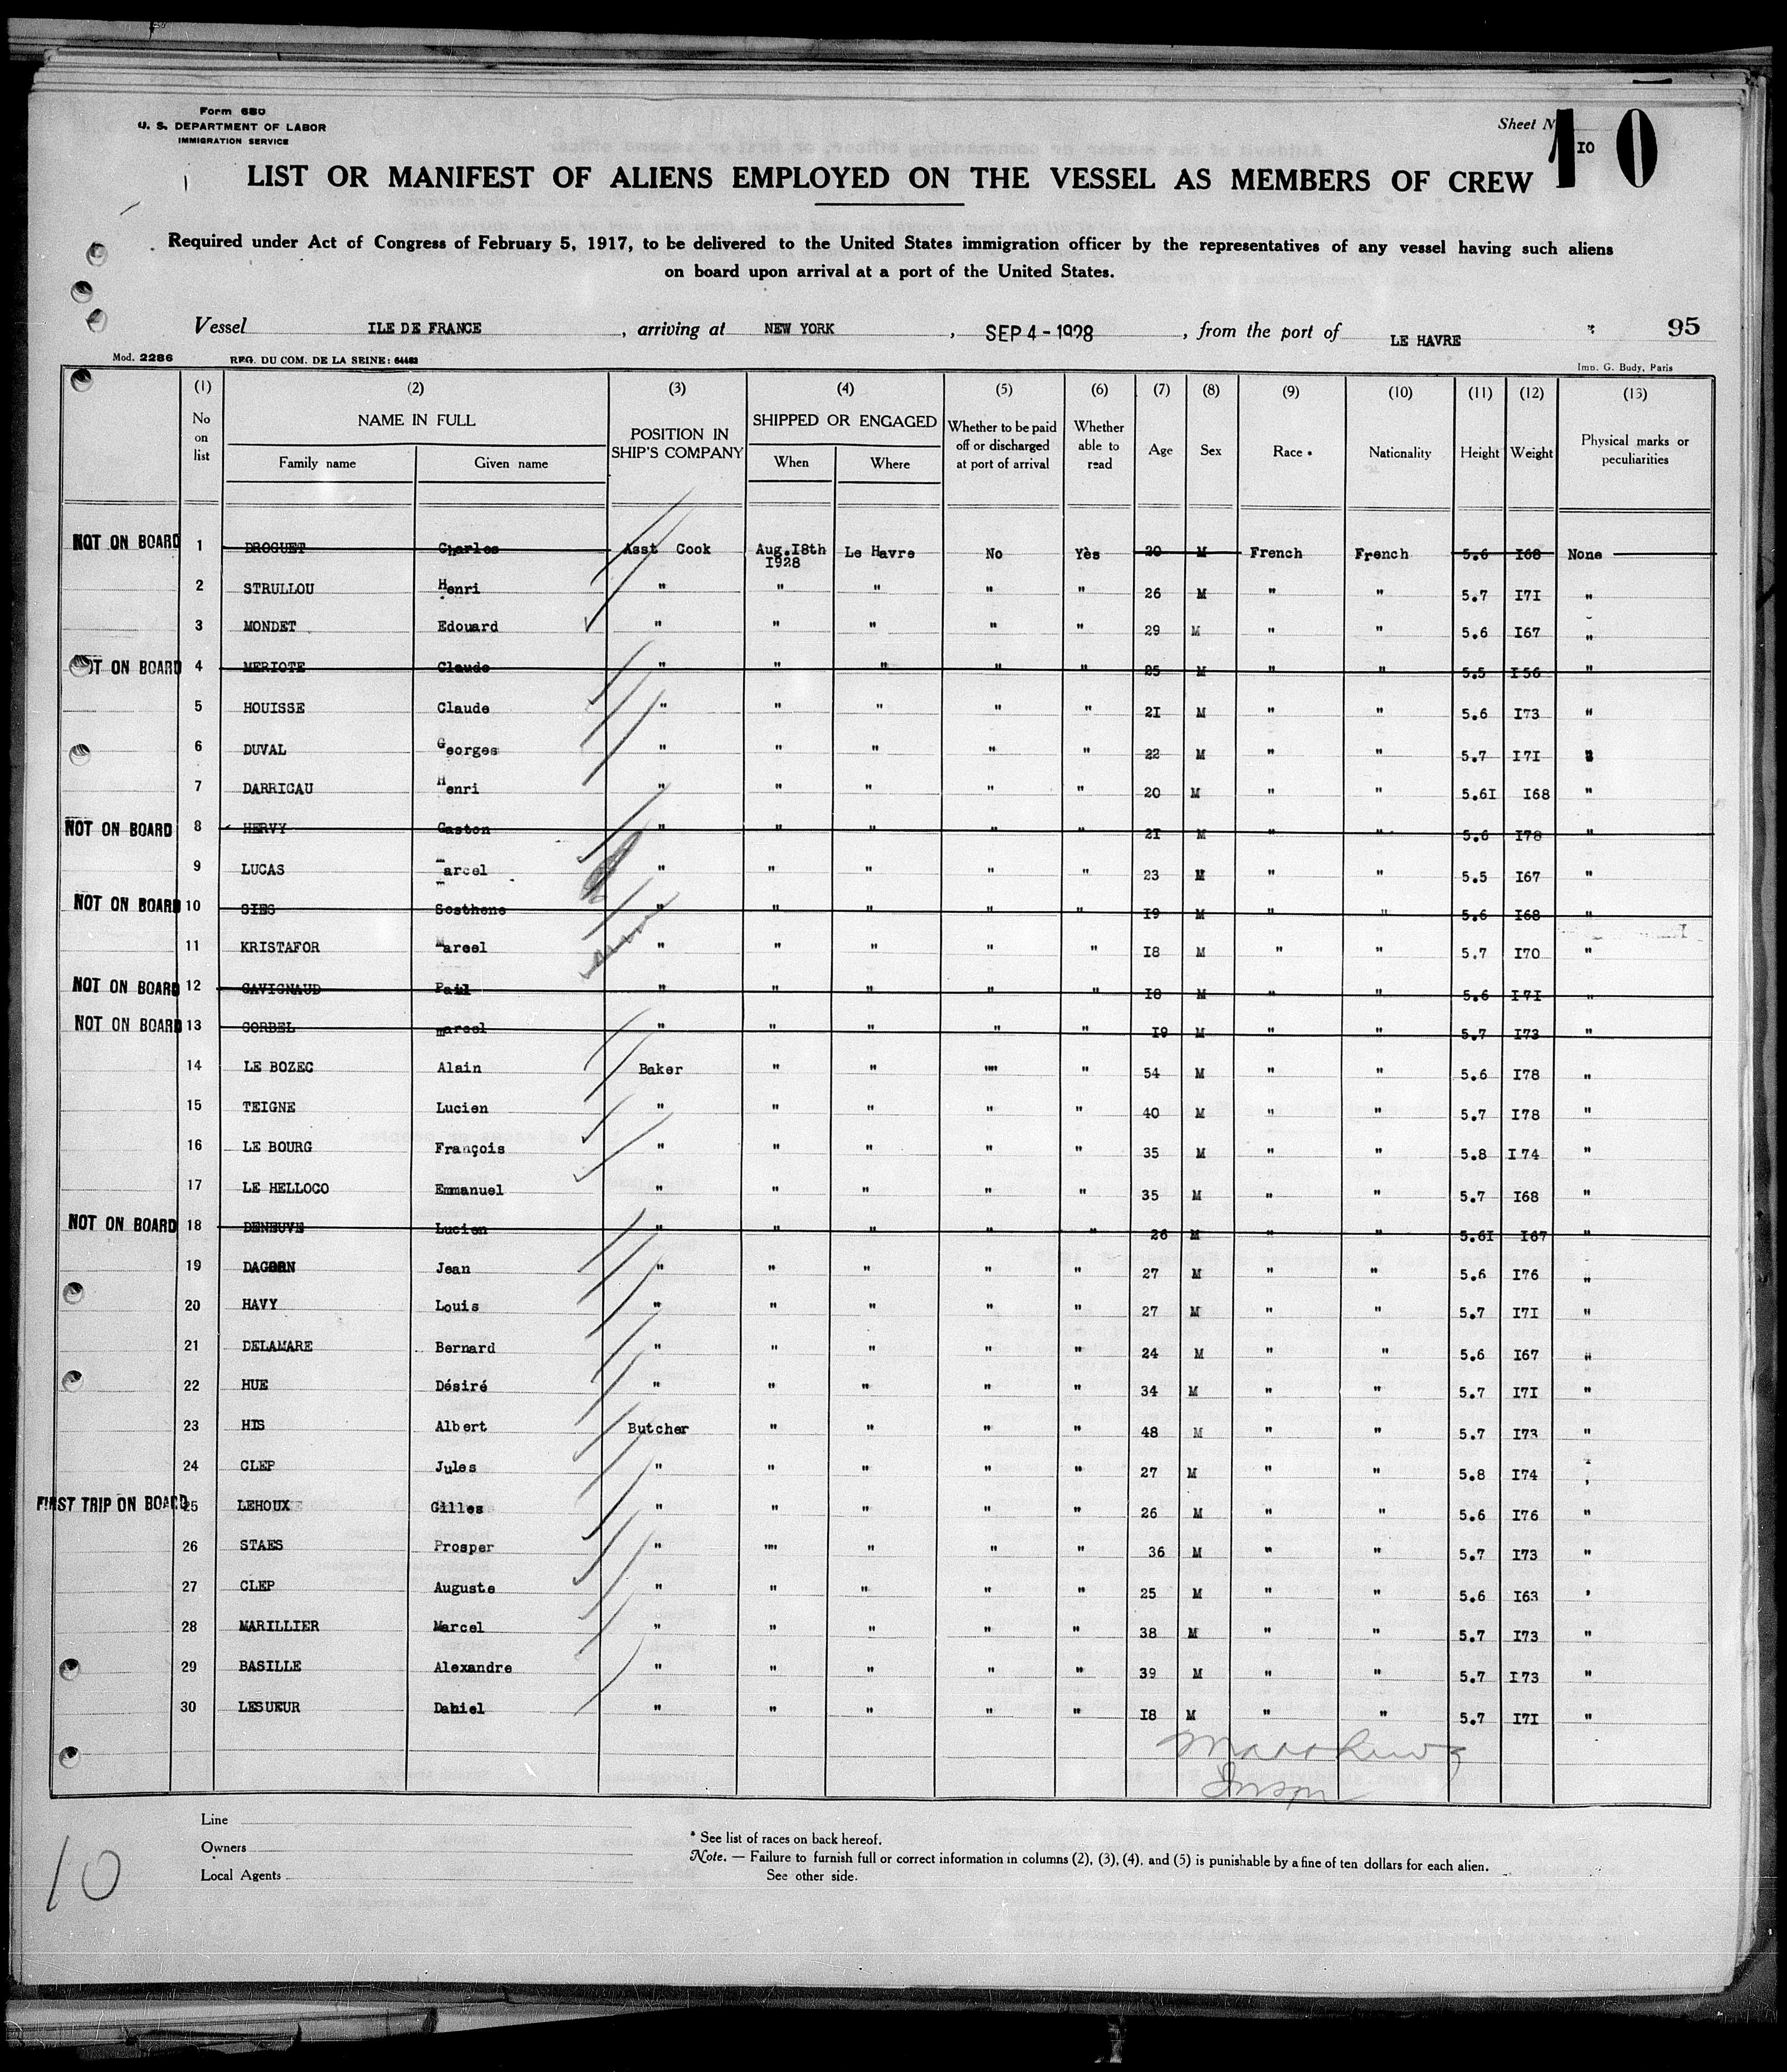 Form 680
U. S. DEPARTMENT OF LABOR
IMMIGRATION SERVICE
Sheet N
10
IO
LIST OR MANIFEST OF ALIENS EMPLOYED ON THE VESSEL AS MEMBERS OF CREW
Required under Act of Congress of February 5, 1917, to be delivered to the United States immigration officer by the representatives of any vessel having such aliens
on board upon arrival at a port of the United States.
Vessel ILE DE FRANCE , arriving at NEW YORK , SEP 4 - 1928 , from the port of LE HAVRE 95
Mod. 2286 REG. DU COM. DE LA SEINE: 64482 Imp. G. Budy, Paris
(1) (2) (3) (4) (5) (6) (7) (8) (9) (10) (11) (12) (13)
No on list NAME IN FULL Family name Given name POSITION IN SHIP'S COMPANY SHIPPED OR ENGAGED When Where Whether to be paid off or discharged at port of arrival Whether able to read Age Sex Race * Nationality Height Weight Physical marks or peculiarities
NOT ON BOARD 1 DROGUET Charles Asst Cook Aug.I8th 1928 Le Havre No Yès 20 M French French 5.6 I68 None
2 STRULLOU Henri " " " " " 26 M " " 5.7 I7I "
3 MONDET Edouard " " " " " 29 M " " 5.6 I67 "
NOT ON BOARD 4 MERIOTE Claude " " " " " 25 M " " 5.5 I56 "
5 HOUISSE Claude " " " " " 2I M " " 5.6 I73 "
6 DUVAL Georges " " " " " 22 M " " 5.7 I7I "
7 DARRICAU Henri " " " " " 20 M " " 5.6I I68 "
NOT ON BOARD 8 HERVY Gaston " " " " " 2I M " " 5.6 I78 "
9 LUCAS marcel " " " " " 23 M " " 5.5 I67 "
NOT ON BOARD 10 SIES Sosthene " " " " " I9 M " " 5.6 I68 "
11 KRISTAFOR Marcel " " " " " I8 M " " 5.7 I70 "
NOT ON BOARD 12 GAVIGNAUD Paul " " " " " I8 M " " 5.6 I7I "
NOT ON BOARD 13 CORBEL marcel " " " " " I9 M " " 5.7 I73 "
14 LE BOZEC Alain Baker " " "" " 54 M " " 5.6 I78 "
15 TEIGNE Lucien " " " " " 40 M " " 5.7 I78 "
16 LE BOURG François " " " " " 35 M " " 5.8 I74 "
17 LE HELLOCO Emmanuel " " " " " 35 M " " 5.7 I68 "
NOT ON BOARD 18 DENEUVE Lucien " " " " " 26 M " " 5.6I I67 "
19 DAGORN Jean " " " " " 27 M " " 5.6 I76 "
20 HAVY Louis " " " " " 27 M " " 5.7 I7I "
21 DELAMARE Bernard " " " " " 24 M " " 5.6 I67 "
22 HUE Désiré " " " " " 34 M " " 5.7 I7I "
23 HIS Albert Butcher " " " " 48 M " " 5.7 I73 "
24 CLEP Jules " " " " " 27 M " " 5.8 I74 "
FIRST TRIP ON BOARD 25 LEHOUX Gilles " " " " " 26 M " " 5.6 I76 "
26 STAES Prosper " "" " " " 36 M " " 5.7 I73 "
27 CLEP Auguste " " " " " 25 M " " 5.6 I63 "
28 MARILLIER Marcel " " " " " 38 M " " 5.7 I73 "
29 BASILLE Alexandre " " " " " 39 M " " 5.7 I73 "
30 LESUEUR Daniel " " " " " I8 M " " 5.7 I7I "
Line
Owners
Local Agents
* See list of races on back hereof.
Note. — Failure to furnish full or correct information in columns (2), (3), (4), and (5) is punishable by a fine of ten dollars for each alien.
See other side.
10